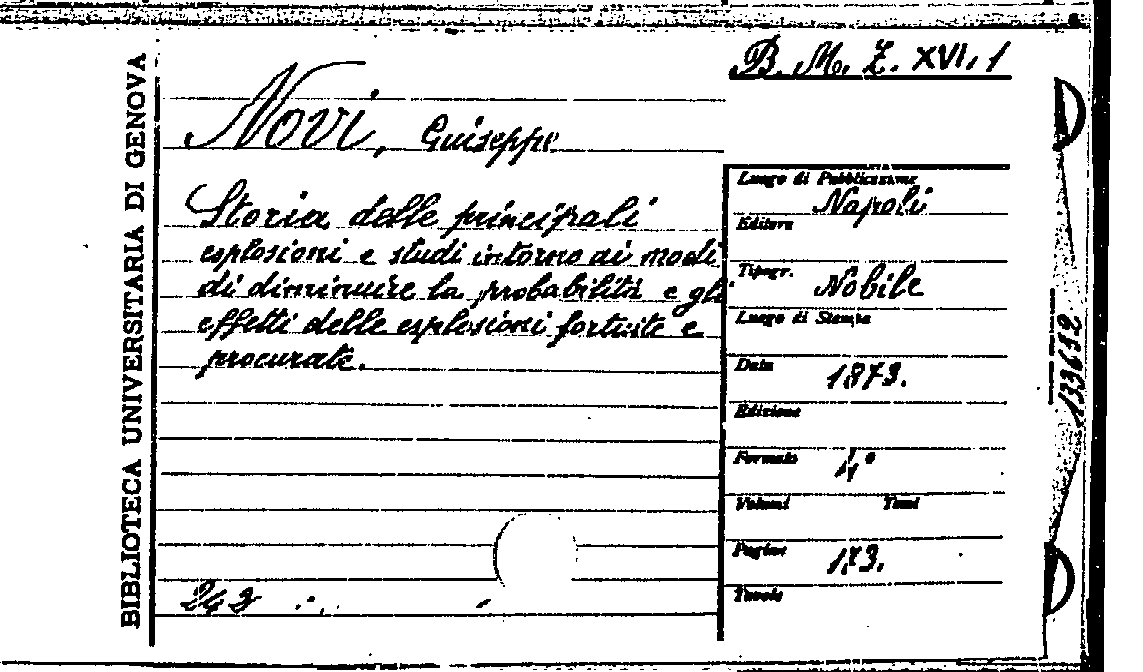 B. M. Z. XVI, 1
BIBLIOTECA UNIVERSITARIA DI GENOVA
Novi, Guiseppe
Storia delle principali
esplosioni e studi intorno ai modi
di diminuire la probabilità e gli
effetti delle esplosioni fortuite e
procurate.
Luogo di Pubblicazione
Napoli
Editore
Tipogr. Nobile
Luogo di Stampa
Data 1873.
Edizione
Formato 4°
Volumi Tomi
Pagine 173.
Tavole
133632